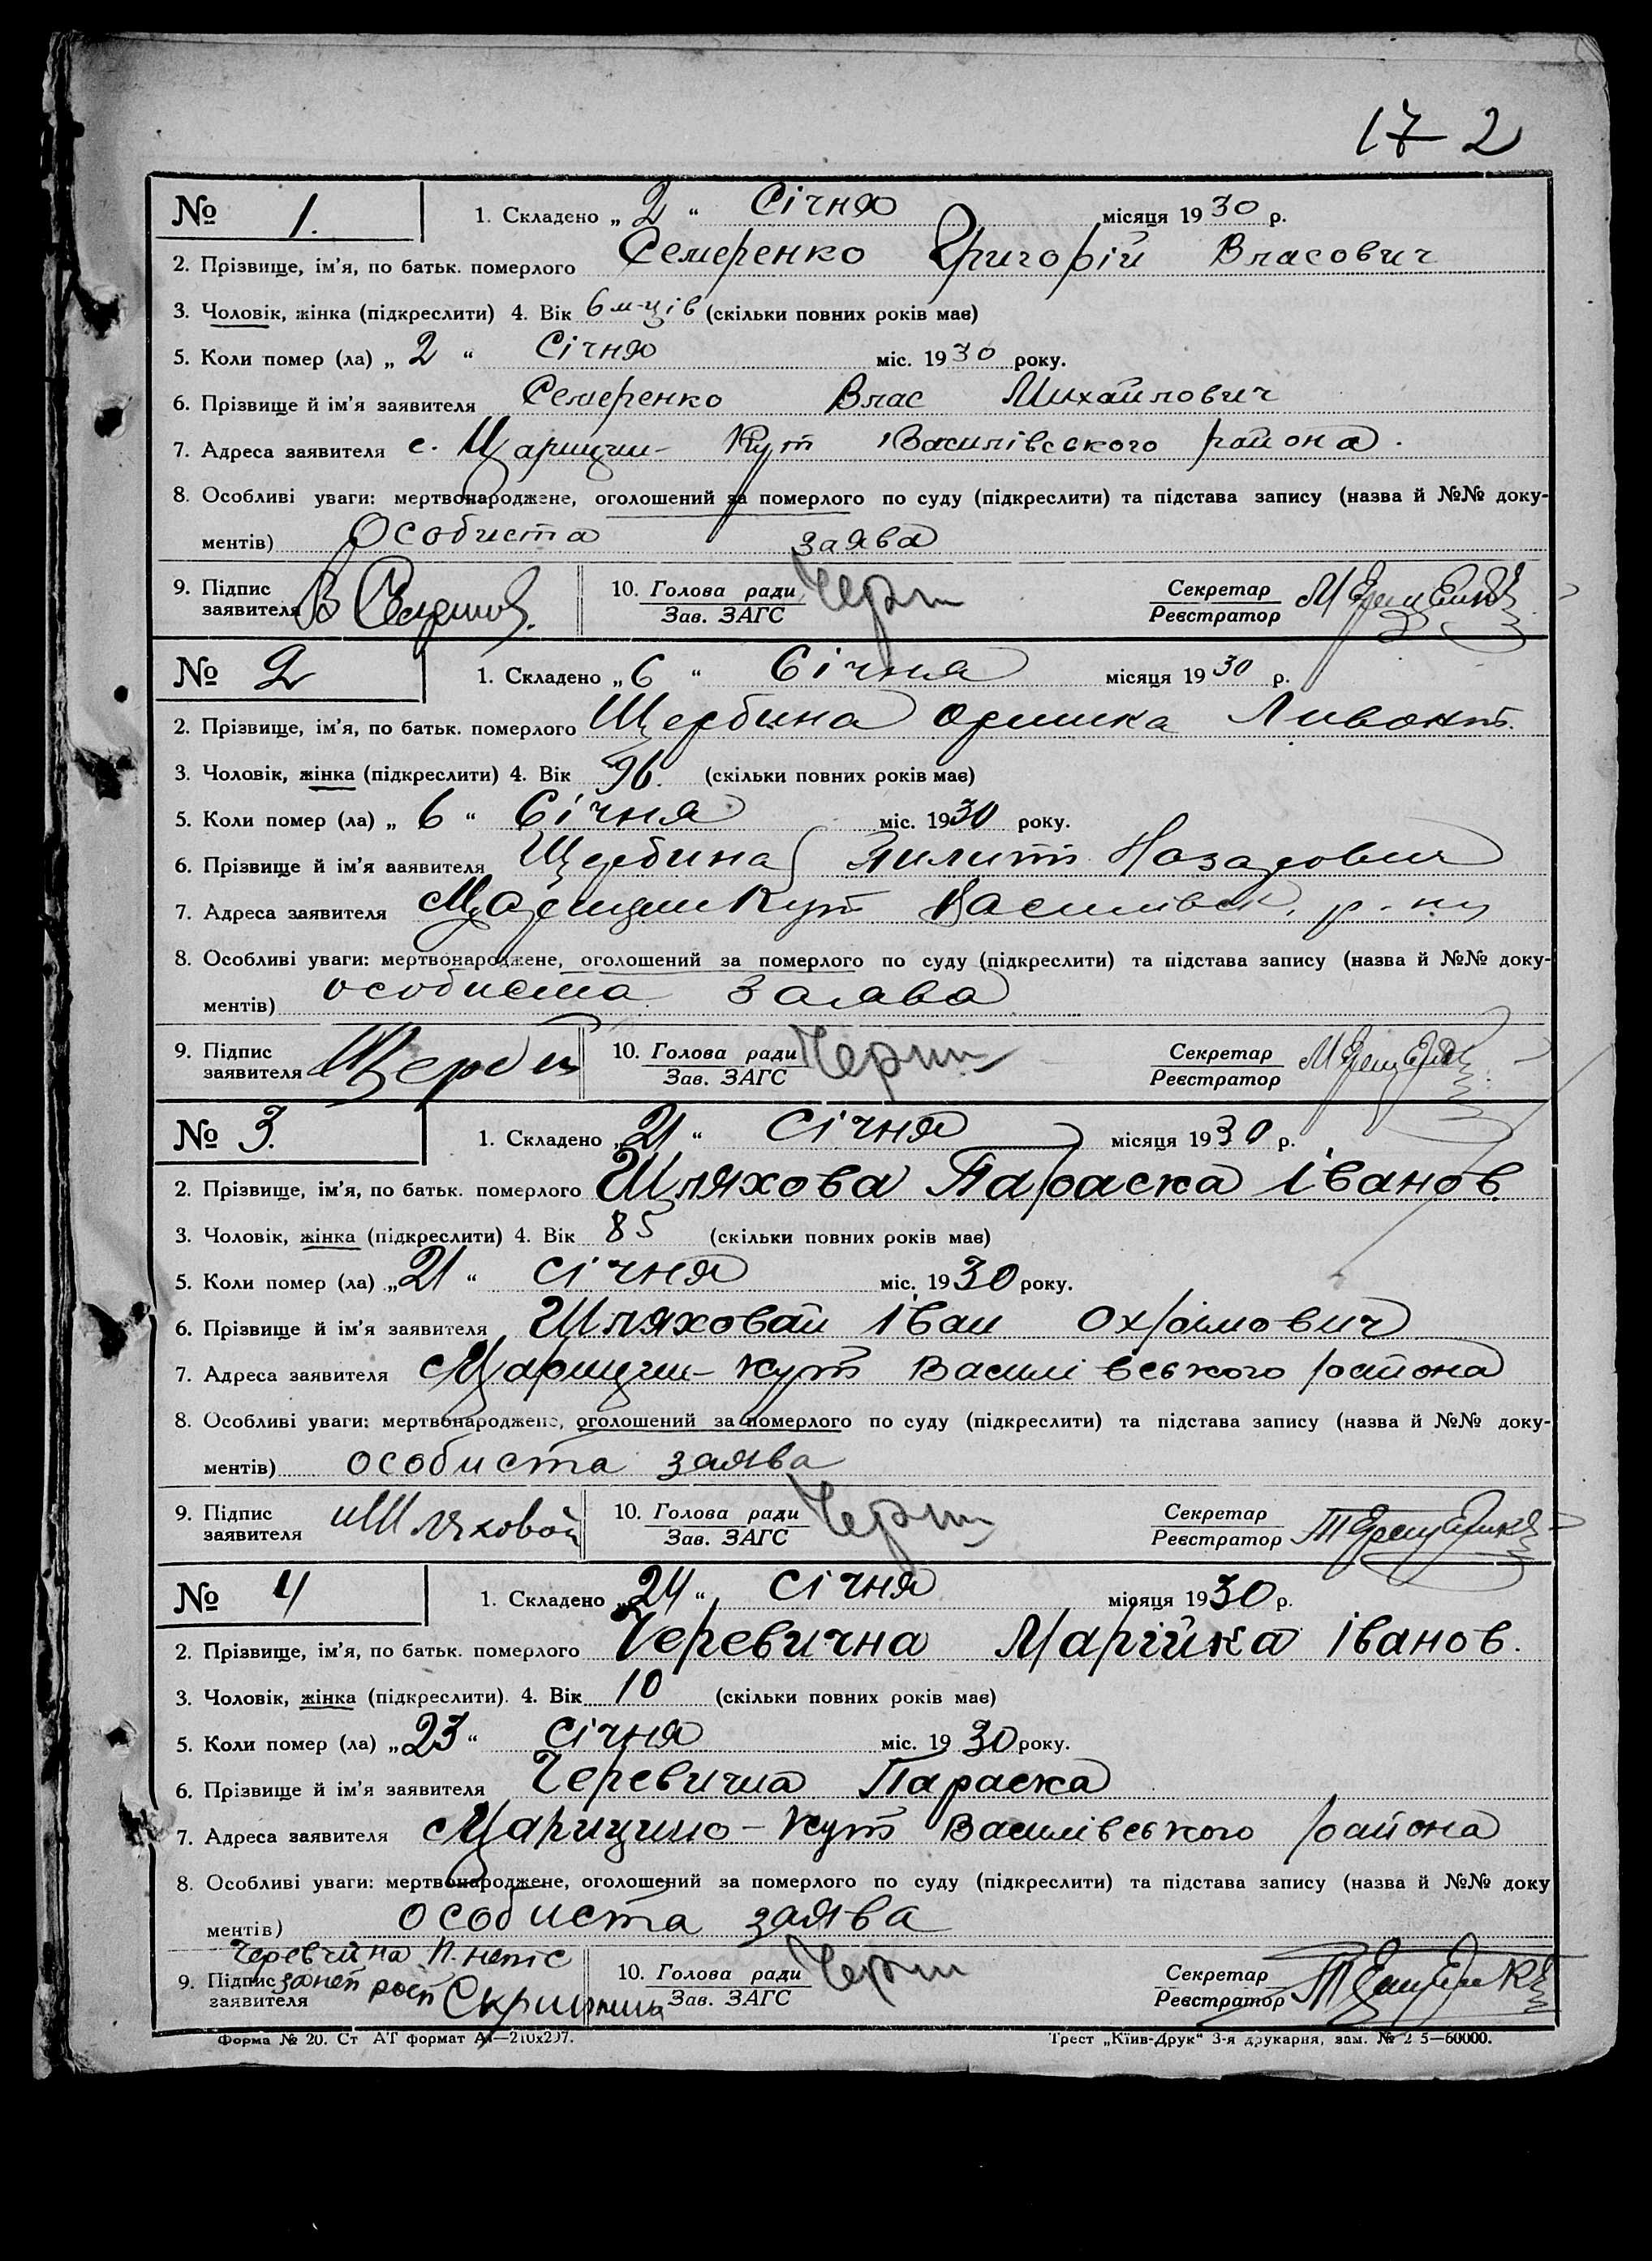 17 2
№ 1. 1. Складено „ 2 “ Січня місяця 1930 р.
2. Прізвище, ім'я, по батьк. померлого Семеренко Григорій Власович
3. Чоловік, жінка (підкреслити) 4. Вік 6 м-ців (скільки повних років має)
5. Коли помер (ла) „ 2 “ Січня міс. 1930 року.
6. Прізвище й ім'я заявителя Семеренко Влас Михайлович
7. Адреса заявителя с. Царицин-Кут Василівського района.
8. Особливі уваги: мертвонароджене, оголошений за померлого по суду (підкреслити) та підстава запису (назва й №№ доку-
ментів) Особиста заява
9. Підпис заявителя В 10. Голова ради Зав. ЗАГС Секретар Реєстратор
№ 2 1. Складено „ 6 “ Січня місяця 1930 р.
2. Прізвище, ім'я, по батьк. померлого Щербина Оришка Ливонт.
3. Чоловік, жінка (підкреслити) 4. Вік 96. (скільки повних років має)
5. Коли помер (ла) „ 6 “ Січня міс. 1930 року.
6. Прізвище й ім'я заявителя Щербина Пилип Назарович
7. Адреса заявителя Царицин Кут Василівськ. р-ну
8. Особливі уваги: мертвонароджене, оголошений за померлого по суду (підкреслити) та підстава запису (назва й №№ доку-
ментів) особиста заява
9. Підпис заявителя Щерби 10. Голова ради Зав. ЗАГС Секретар Реєстратор
№ 3. 1. Складено „ 21 “ Січня місяця 1930 р.
2. Прізвище, ім'я, по батьк. померлого Шляхова Параска Іванов.
3. Чоловік, жінка (підкреслити) 4. Вік 85 (скільки повних років має)
5. Коли помер (ла) „ 21 “ січня міс. 1930 року.
6. Прізвище й ім'я заявителя Шляховай Іван Охрімович
7. Адреса заявителя Царицин-Кут Василівського района
8. Особливі уваги: мертвонароджене, оголошений за померлого по суду (підкреслити) та підстава запису (назва й №№ доку-
ментів) особиста заява
9. Підпис заявителя Шляховой 10. Голова ради Зав. ЗАГС Секретар Реєстратор
№ 4 1. Складено „ 24 “ січня місяця 1930 р.
2. Прізвище, ім'я, по батьк. померлого Черевична Марійка Іванов.
3. Чоловік, жінка (підкреслити). 4. Вік 10 (скільки повних років має)
5. Коли помер (ла) „ 23 “ січня міс. 1930 року.
6. Прізвище й ім'я заявителя Черевична Параска
7. Адреса заявителя Царицино-Кут Василівського района
8. Особливі уваги: мертвонароджене, оголошений за померлого по суду (підкреслити) та підстава запису (назва й №№ доку
ментів) особиста заява
9. Підпис заявителя 10. Голова ради Зав. ЗАГС Секретар Реєстратор
Форма № 20. Ст АТ формат А4—210х297. Трест „Київ-Друк“ 3-я друкарня, зам. № 2 5—60000.